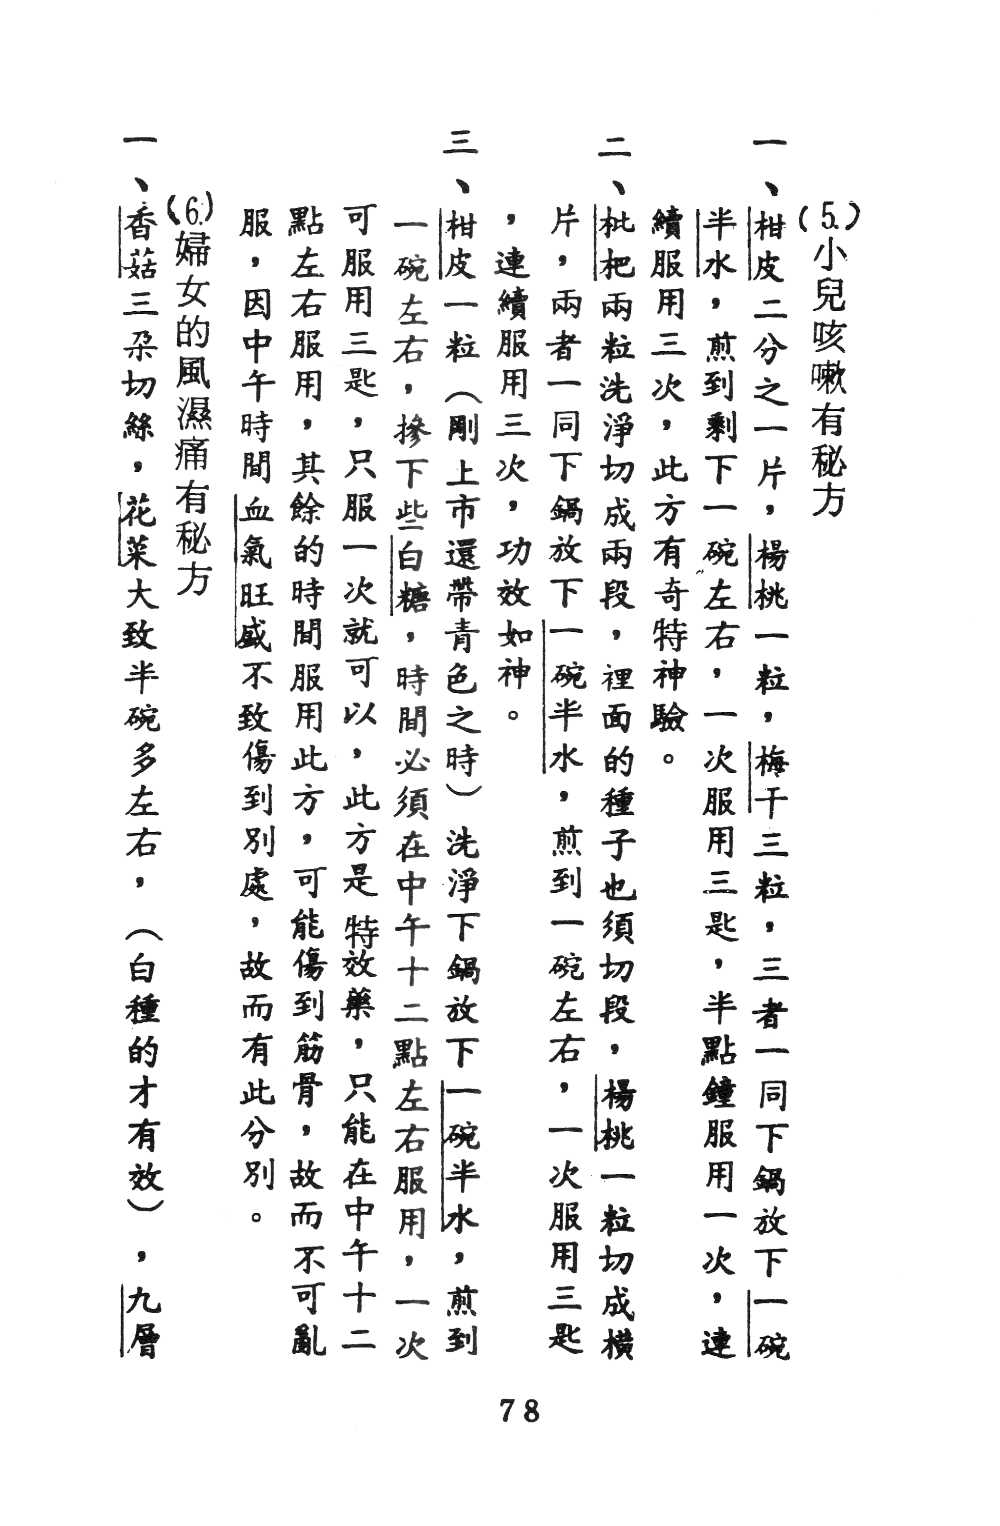 (5.)小兒咳嗽有秘方
一、柑皮二分之一片，楊桃一粒，梅干三粒，三者一同下鍋放下一碗
半水，煎到剩下一碗左右，一次服用三匙，半點鐘服用一次，連
續服用三次，此方有奇特神驗。
二、枇杷兩粒洗淨切成兩段，裡面的種子也須切段，楊桃一粒切成橫
片，兩者一同下鍋放下一碗半水，煎到一碗左右，一次服用三匙
，連續服用三次，功效如神。
三、柑皮一粒（剛上市還帶青色之時）洗淨下鍋放下一碗半水，煎到
一碗左右，摻下些白糖，時間必須在中午十二點左右服用，一次
可服用三匙，只服一次就可以，此方是特效藥，只能在中午十二
點左右服用，其餘的時間服用此方，可能傷到筋骨，故而不可亂
服，因中午時間血氣旺盛不致傷到別處，故而有此分別。
(6.)婦女的風濕痛有秘方
一、香菇三朶切絲，花菜大致半碗多左右，（白種的才有效），九層
78